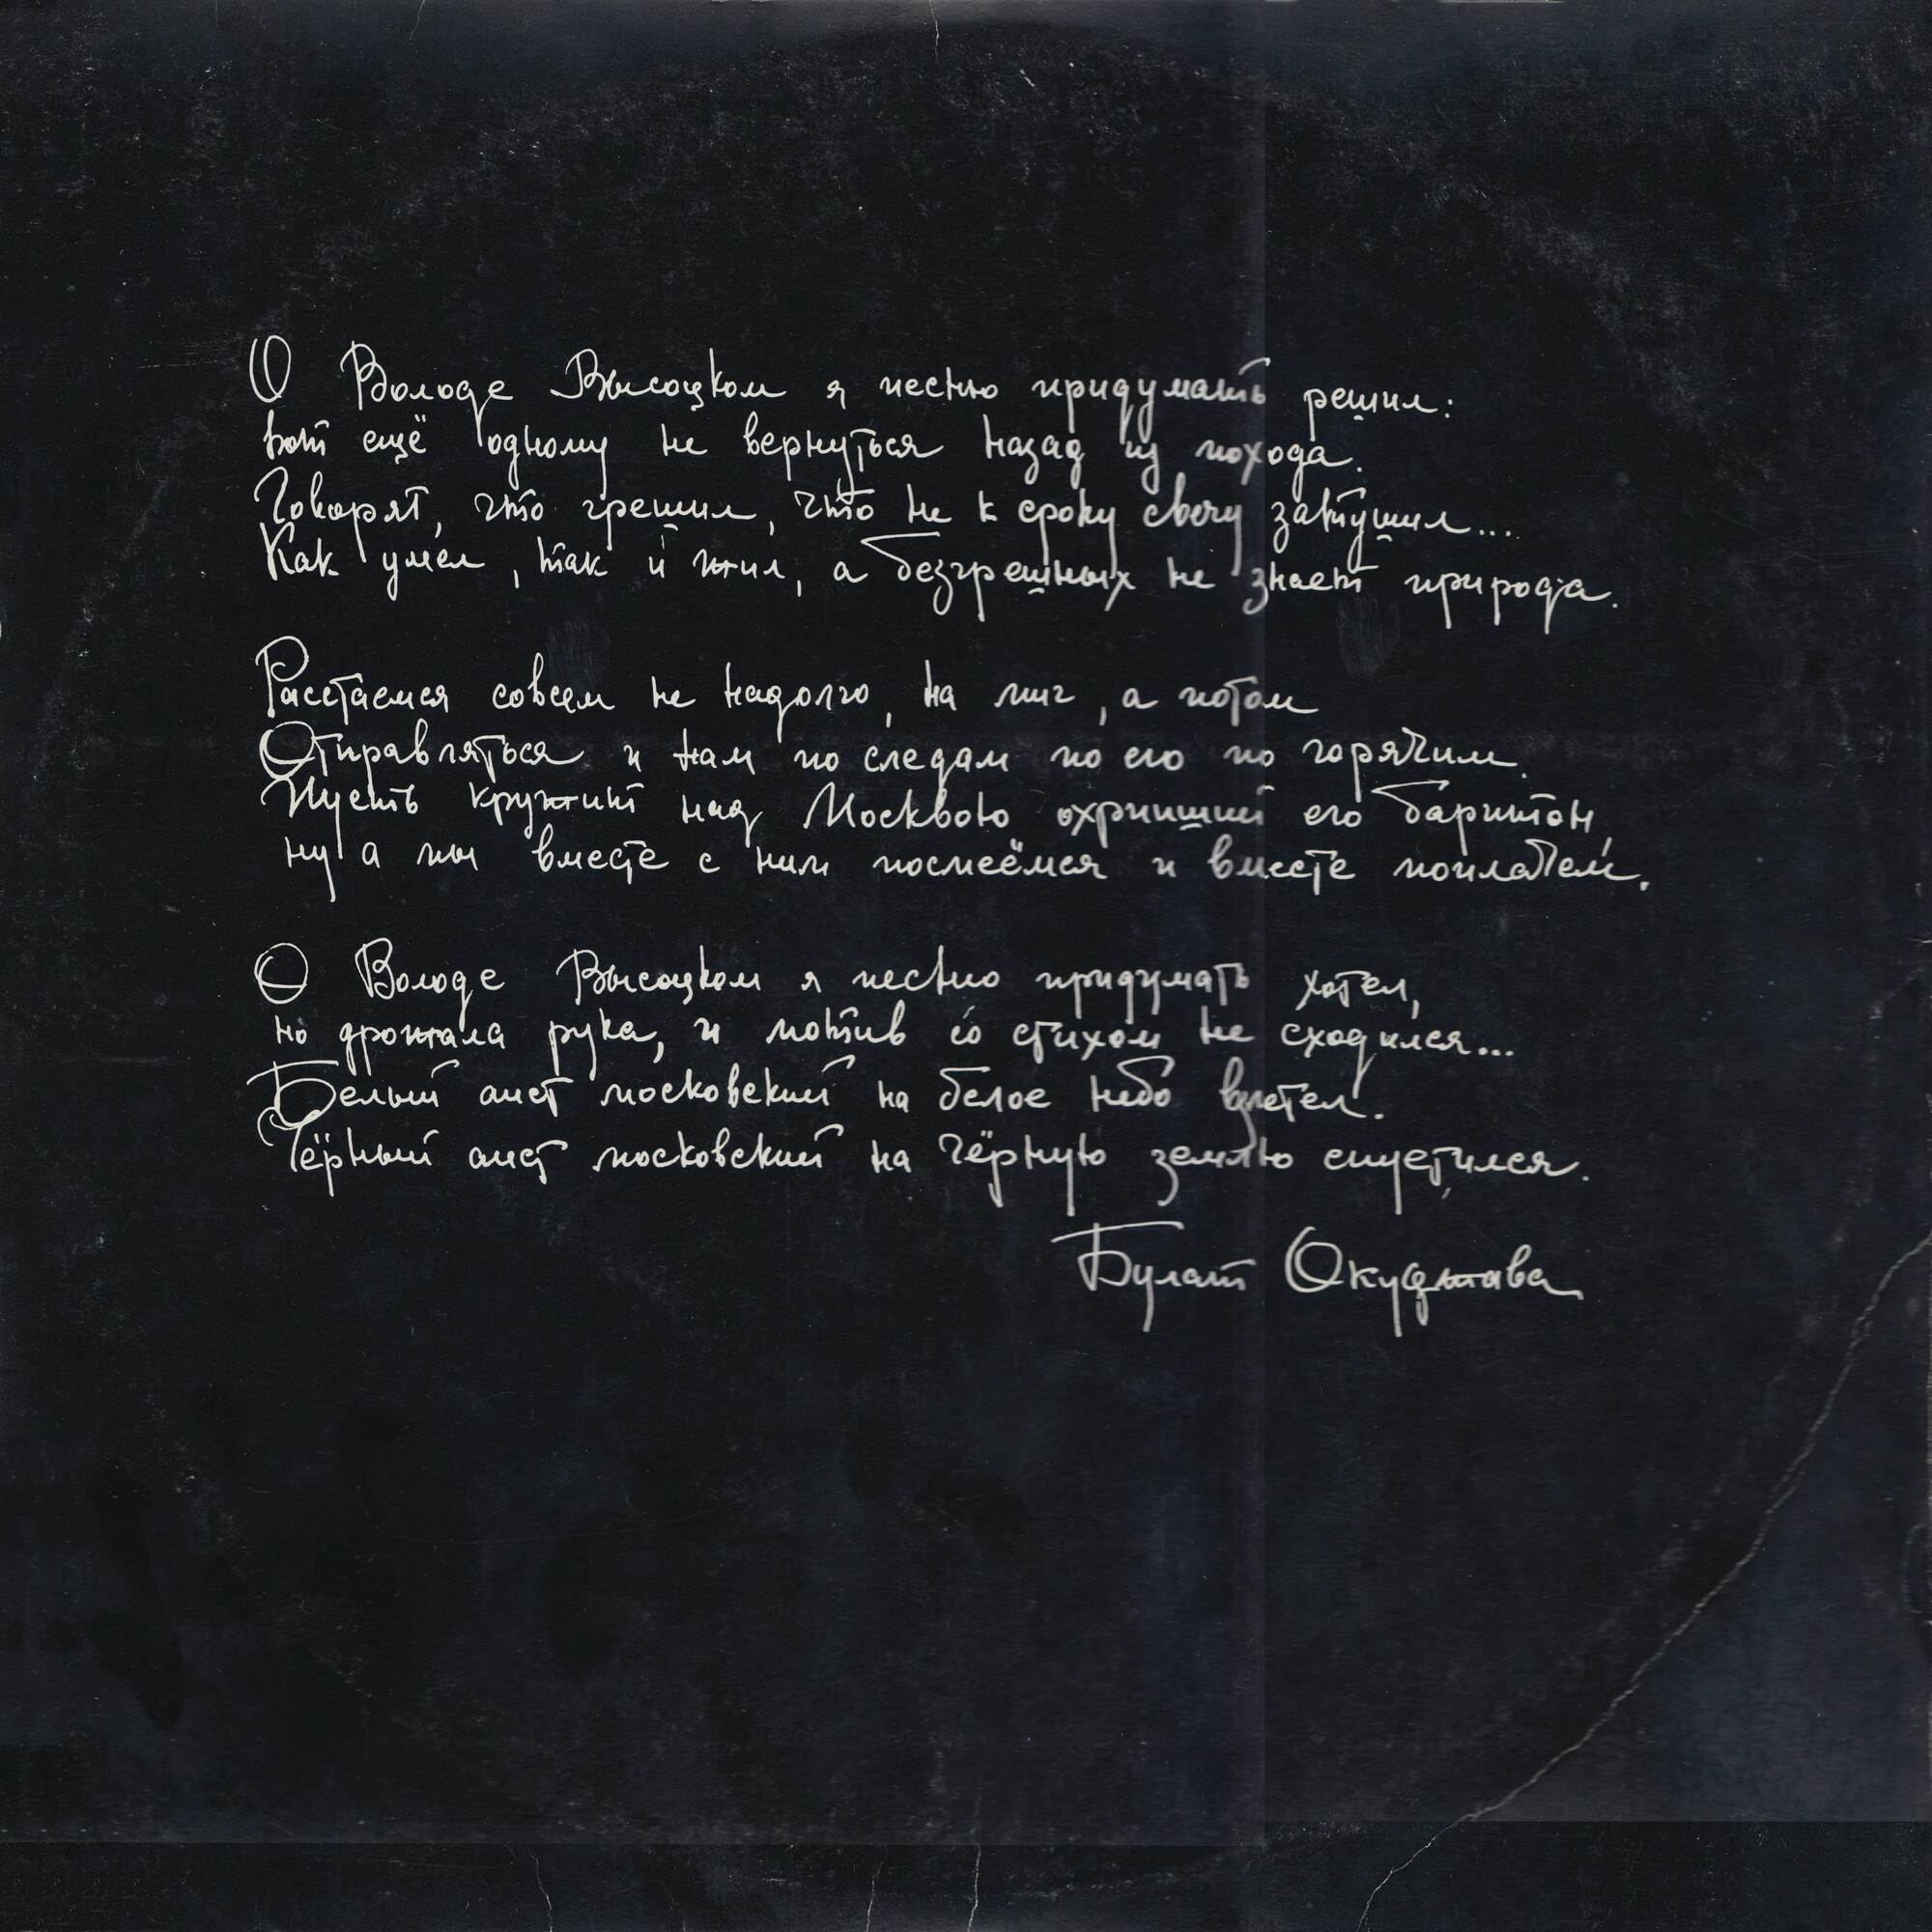 О Володе Высоцком я песню придумать решил:
вот ещё одному не вернуться назад из похода.
Говорят, что грешил, что не к сроку свечу затушил...
Как умел, так и жил, а безгрешных не знает природа.
Расстаемся совсем не надолго, на миг, а потом
Отправляться и нам по следам по его по горячим.
Пусть кружит над Москвою охрипший его баритон,
ну а мы вместе с ним посмеёмся и вместе поплачем.
О Володе Высоцком я песню придумать хотел,
но дрожала рука, и мотив со стихом не сходился...
Белый аист московский на белое небо взлетел.
Чёрный аист московский на чёрную землю спустился.
Булат Окуджава